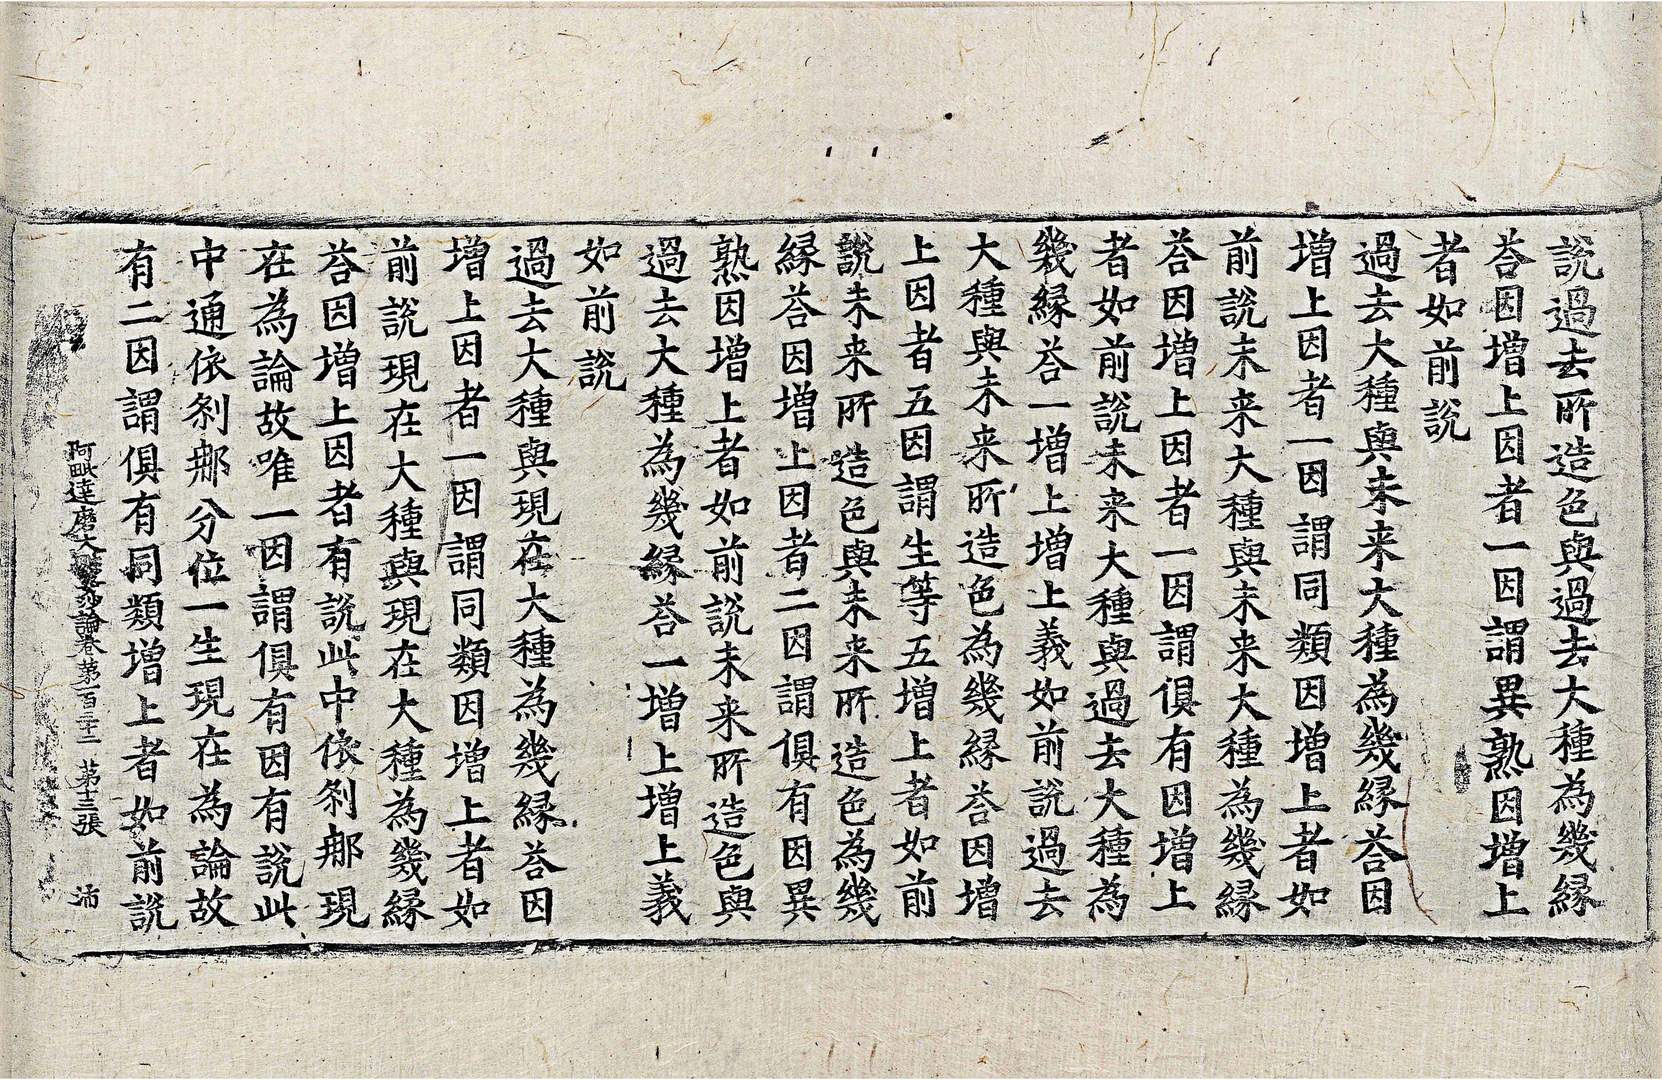 說過去所造色與過去大種為幾縁
荅因增上因者一因謂異熟因增上
者如前說
過去大種與未来大種為幾縁荅因
增上因者一因謂同類因增上者如
前說未来大種與未来大種為幾縁
荅因增上因者一因謂俱有因增上
者如前說未来大種與過去大種為
幾縁荅一增上增上義如前說過去
大種與未来所造色為幾縁荅因增
上因者五因謂生等五增上者如前
說未来所造色與未来所造色為幾
縁荅因增上因者二因謂俱有因異
熟因增上者如前說未来所造色與
過去大種為幾縁荅一增上增上義
如前說
過去大種與現在大種為幾縁荅因
增上因者一因謂同類因增上者如
前說現在大種與現在大種為幾縁
荅因增上因者有說此中依剎那現
在為論故唯一因謂俱有因有說此
中通依剎那分位一生現在為論故
有二因謂俱有同類增上者如前說
阿毗達磨大毗婆沙論卷第一百三十二 第十三張 沛